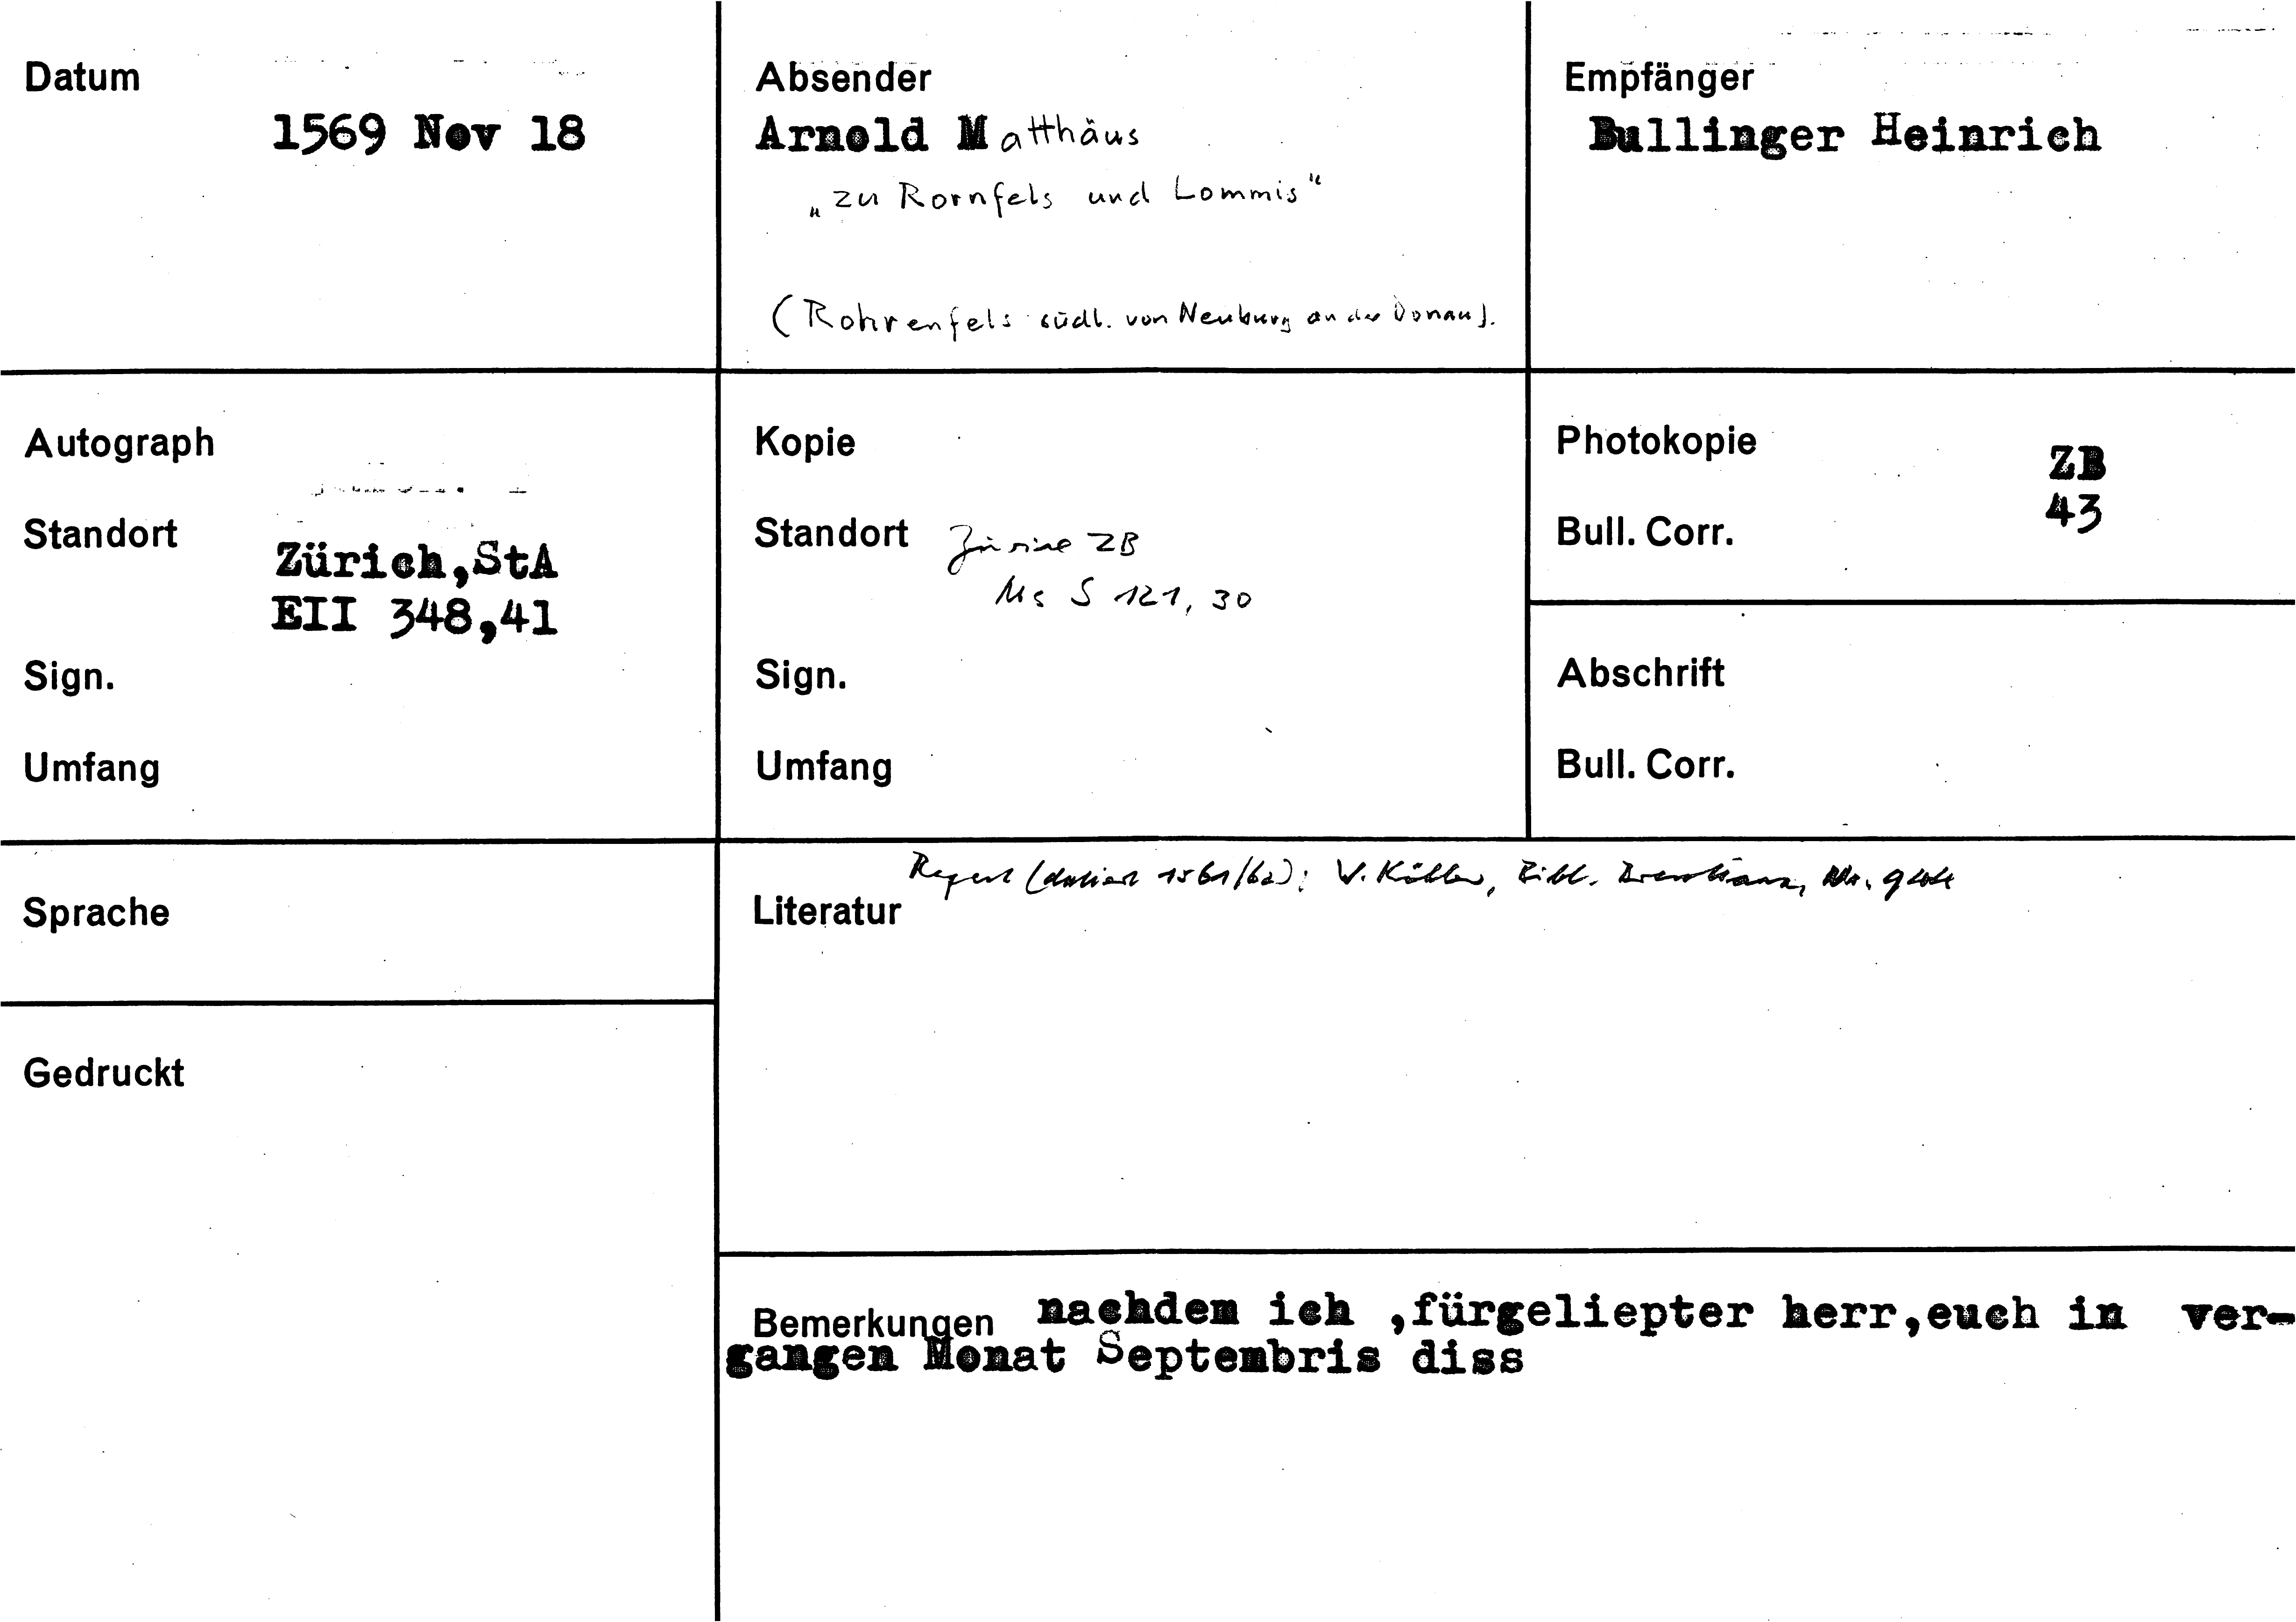 Datum
1569 Nov 18
Absender
Arnold Matthäus
„zu Rornfels und Lommis“
(Rohrenfels südl. von Neuburg an der Donau).
Empfänger
Bullinger Heinrich
Autograph
Standort
Zürich,StA
EII 348,41
Sign.
Umfang
Kopie
Standort Zürich ZB
Ms S 121, 30
Sign.
Umfang
Photokopie
ZB
Bull. Corr.
43
Abschrift
Bull. Corr.
Sprache
Regest (datiert 1561/62): W. Köhler, Bibl. Brentiana, Nr.
Literatur
Gedruckt
Bemerkungen nachdem ich ,fürgeliepter herr,euch in ver-
gangen Monat Septembris diss